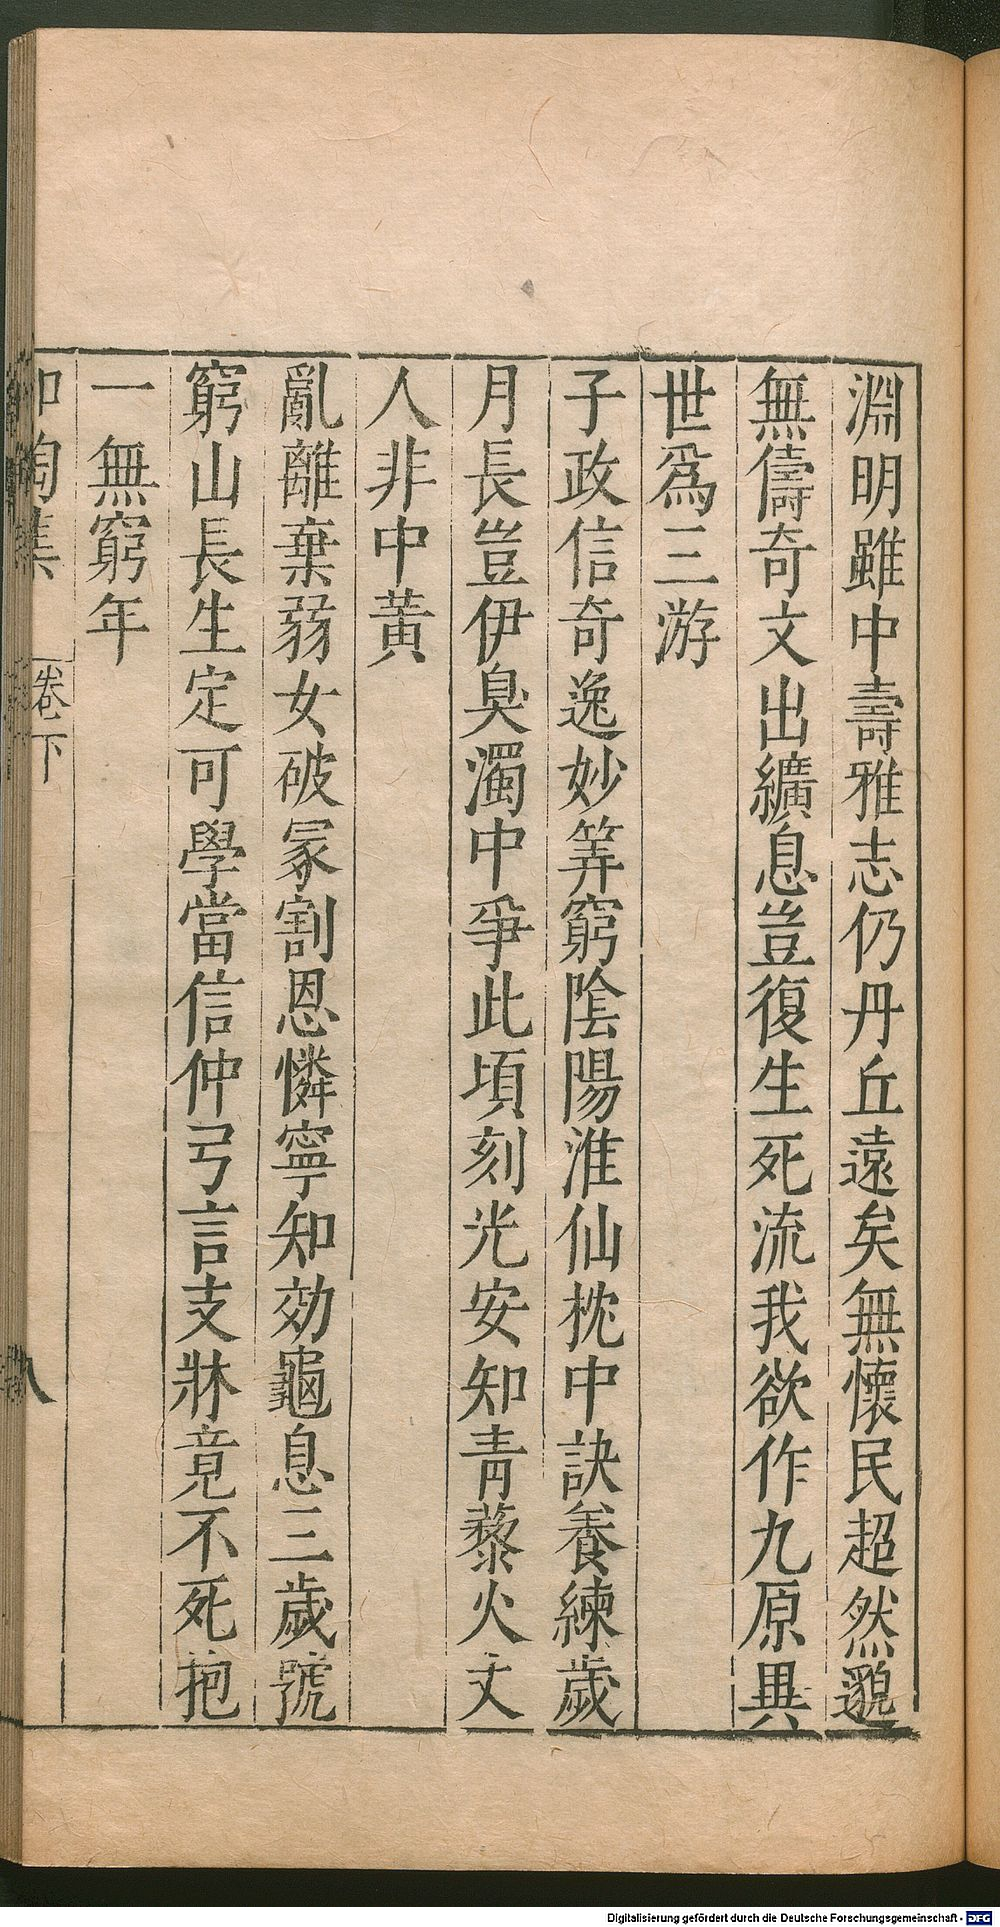 淵明雖中壽雅志仍丹丘遠矣無懷民超然邈
無儔奇文出纊息豈復生死流我欲作九原異
世爲三游
子政信奇逸妙筭窮陰陽淮仙枕中訣養練歲
月長豈伊臭濁中爭此頃刻光安知青藜火丈
人非中黃
亂離棄弱女破冢割恩憐寧知効龜息三歲號
窮山長生定可學當信仲弓言支牀竟不死抱
一無窮年
和陶集 卷下 八
Digitalisierung gefördert durch die Deutsche Forschungsgemeinschaft - DFG